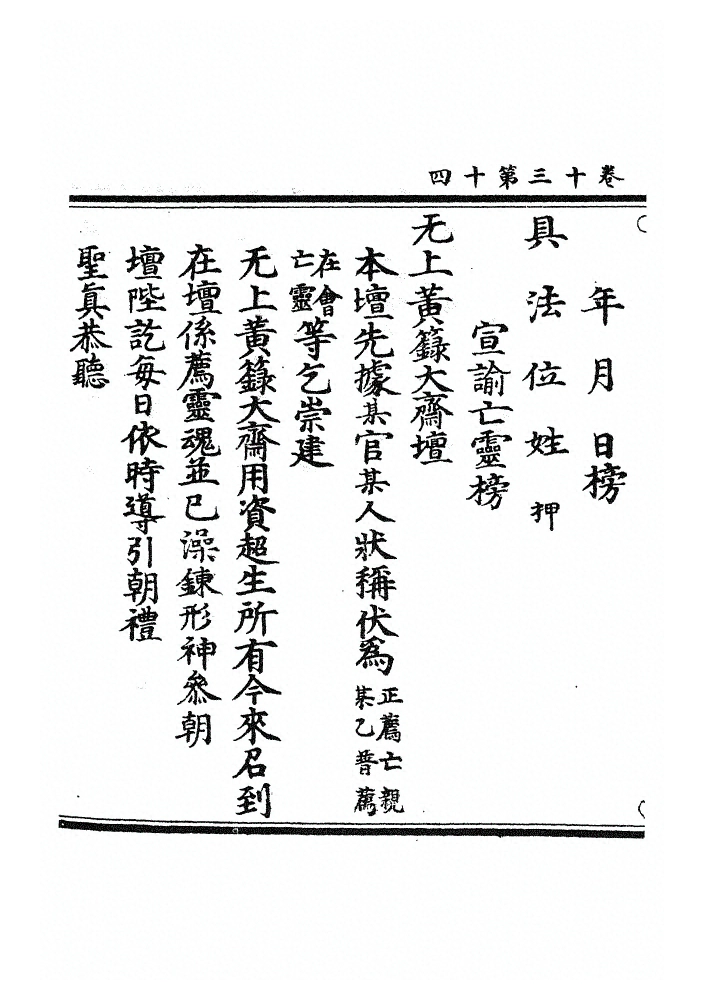 卷十三第十四
年月日榜
具法位姓押
宣諭亡靈榜
无上黃籙大齋壇
本壇先據某官某人狀稱伏爲正薦亡親某乙普薦
在會亡靈等乞崇建
无上黃籙大齋用資超生所有今來召到
在壇係薦靈魂並已澡鍊形神叅朝
壇陛訖每日依時導引朝禮
聖眞恭聽